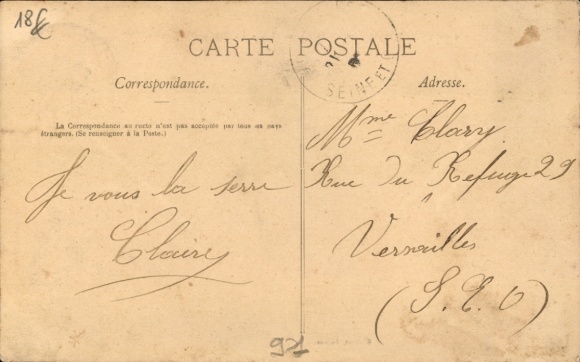 18€
CARTE POSTALE
Correspondance.
La Correspondance au recto n'est pas acceptée par tous les pays
étrangers. (Se renseigner à la Poste.)
Je vous la serre
Claire
SEINE-ET
Adresse.
Mme Clary
Rue du Refuge 29
Versailles
(S. E. O)